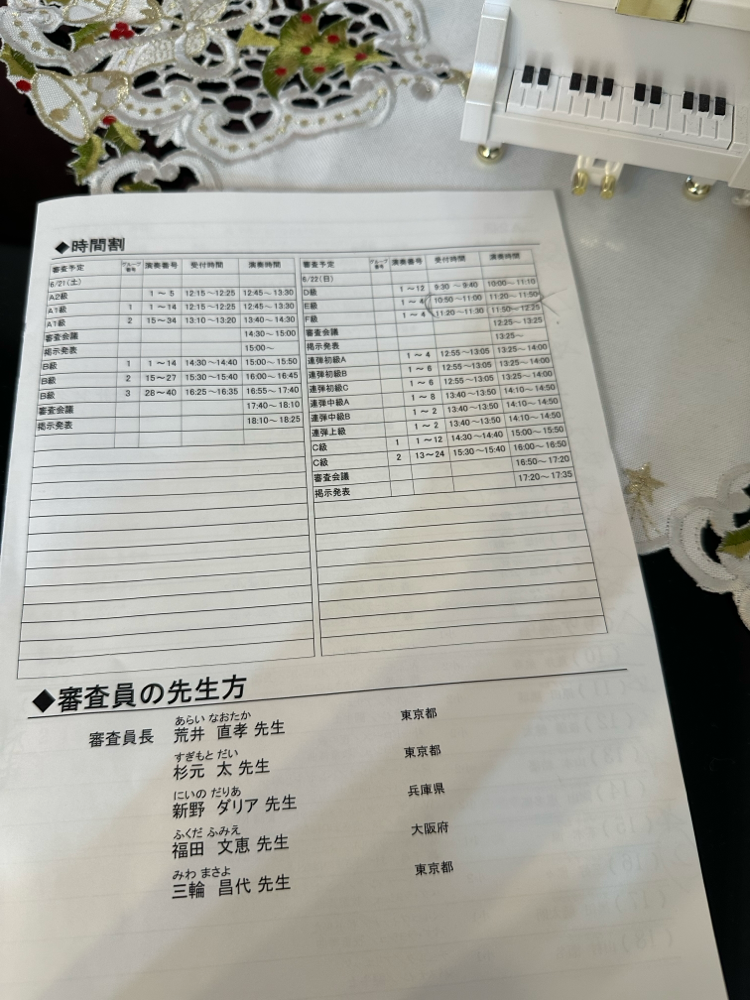 ◆時間割
審査予定 グループ番号 演奏番号 受付時間 演奏時間
6/21(土)
A2級 1～5 12:15～12:25 12:45～13:30
A1級 1 1～14 12:15～12:25 12:45～13:30
A1級 2 15～34 13:10～13:20 13:40～14:30
審査会議 14:30～15:00
掲示発表 15:00～
B級 1 1～14 14:30～14:40 15:00～15:50
B級 2 15～27 15:30～15:40 16:00～16:45
B級 3 28～40 16:25～16:35 16:55～17:40
審査会議 17:40～18:10
掲示発表 18:10～18:25
審査予定 グループ番号 演奏番号 受付時間 演奏時間
6/22(日)
D級 1～12 9:30～9:40 10:00～11:10
E級 1～4 10:50～11:00 11:20～11:50
F級 1～4 11:20～11:30 11:50～12:25
審査会議 12:25～13:25
掲示発表 13:25～
連弾初級A 1～4 12:55～13:05 13:25～14:00
連弾初級B 1～6 12:55～13:05 13:25～14:00
連弾初級C 1～6 12:55～13:05 13:25～14:00
連弾中級A 1～8 13:40～13:50 14:10～14:50
連弾中級B 1～2 13:40～13:50 14:10～14:50
連弾上級 1～2 13:40～13:50 14:10～14:50
C級 1 1～12 14:30～14:40 15:00～15:50
C級 2 13～24 15:30～15:40 16:00～16:50
審査会議 16:50～17:20
掲示発表 17:20～17:35
◆審査員の先生方
あらい なおたか
審査員長 荒井 直孝 先生 東京都
すぎもと だい
杉元 太 先生 東京都
にいの だりあ
新野 ダリア 先生 兵庫県
ふくだ ふみえ
福田 文恵 先生 大阪府
みわ まさよ
三輪 昌代 先生 東京都